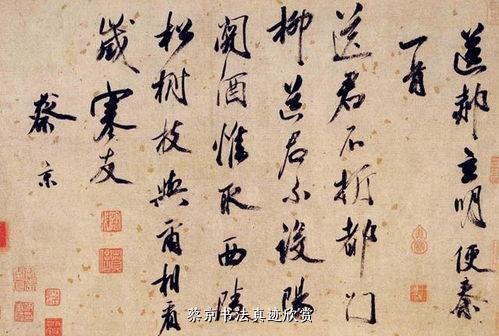 送郝玄明使秦
一首
送君不折都门
柳送君不设阳
关酒惟取西陵
松树枝与尔相看
岁寒友
蔡京
蔡京书法真迹欣赏